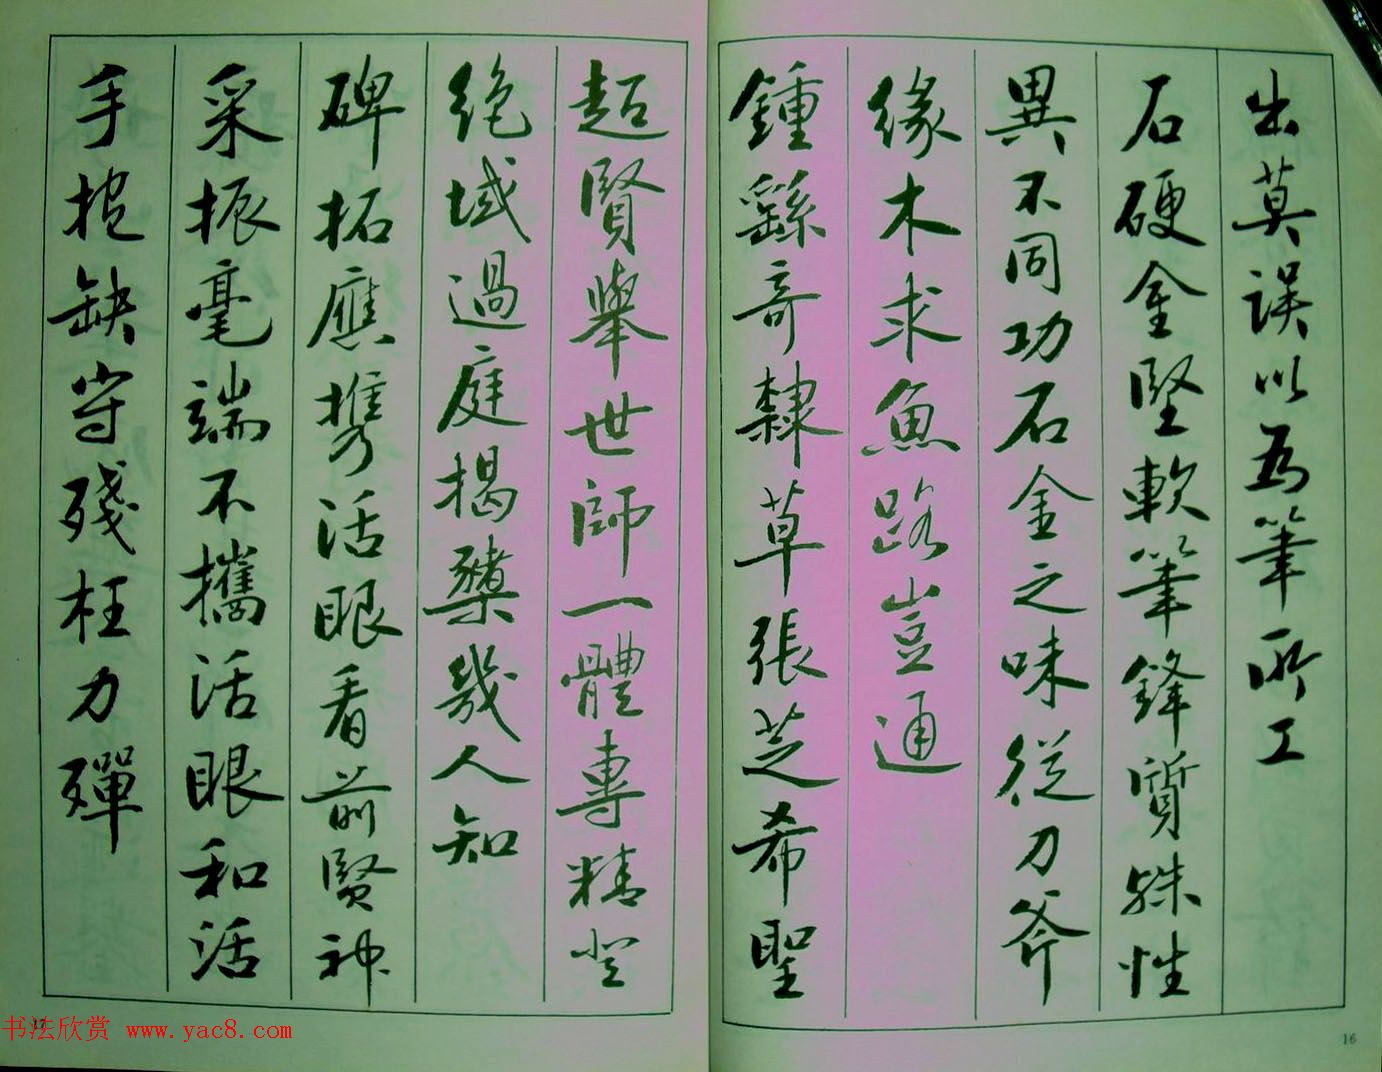 出莫誤以為筆所工
石硬金堅軟筆鋒質殊性
異不同功石金之味從刀斧
緣木求魚路豈通
鍾繇奇隸草張芝希聖
超賢舉世師一體專精登
絶域過庭揭櫫幾人知
碑拓應携活眼看前賢神
采振毫端不攜活眼和活
手抱缺守殘枉力殫
16
书法欣赏 www.yac8.com